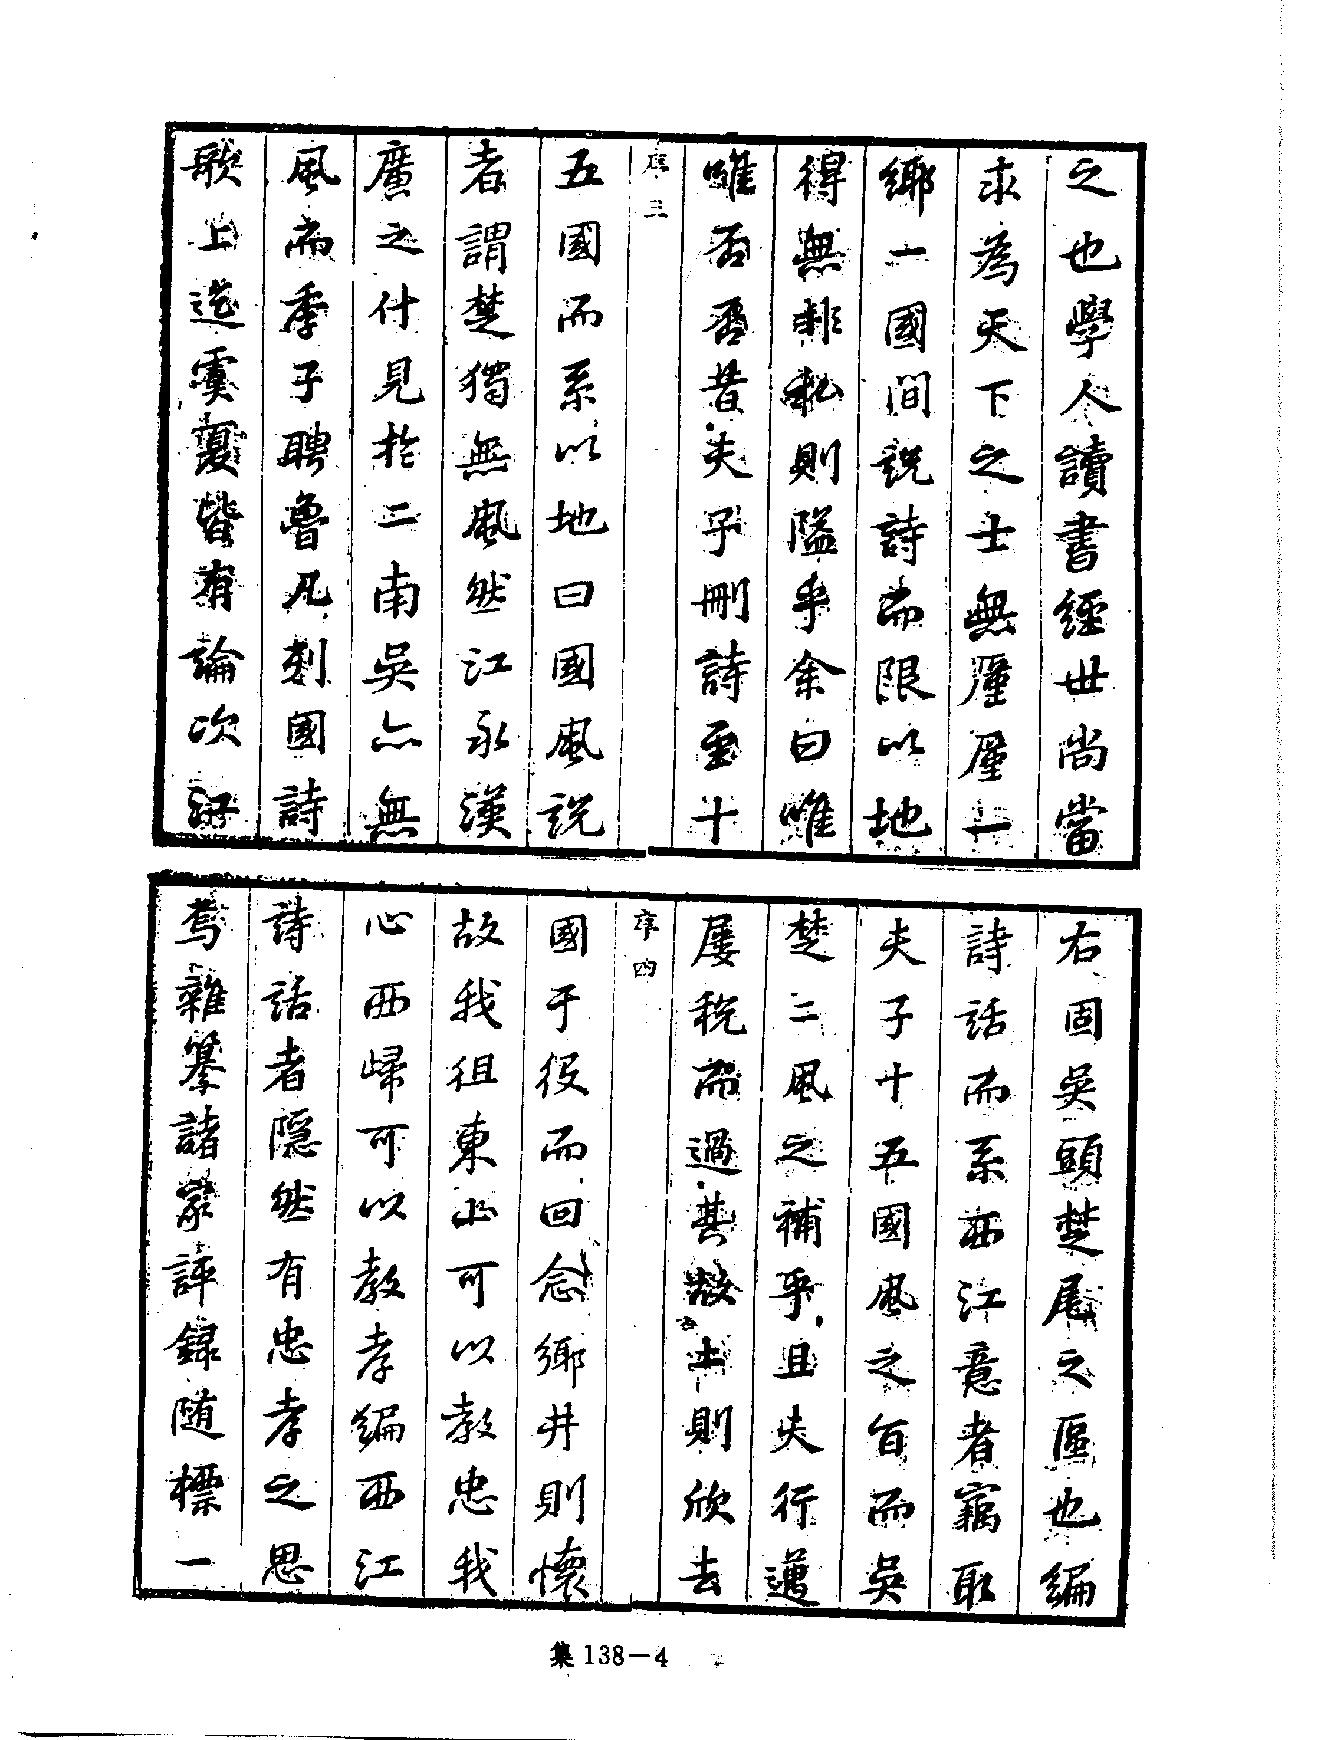 之也學人讀書經世尚當
求為天下之士無廑廑一
鄉一國間說詩而限以地
得無非私則隘乎余曰唯
唯否否昔夫子刪詩至十
序三
五國而系以地曰國風說
者謂楚獨無風然江永漢
廣之什見於二南吳亦無
風而季子聘魯凡刺國詩
歌上迄虞夏皆有論次江
右固吳頭楚尾之區也編
詩話而系西江意者竊取
夫子十五國風之旨而吳
楚二風之補乎且夫行邁
屢稅而過其故土則欣去
序四
國于役而回念鄉井則懷
故我徂東山可以教忠我
心西歸可以教孝編西江
詩話者隱然有忠孝之思
焉雜纂諸家評錄隨標一
集 138－4